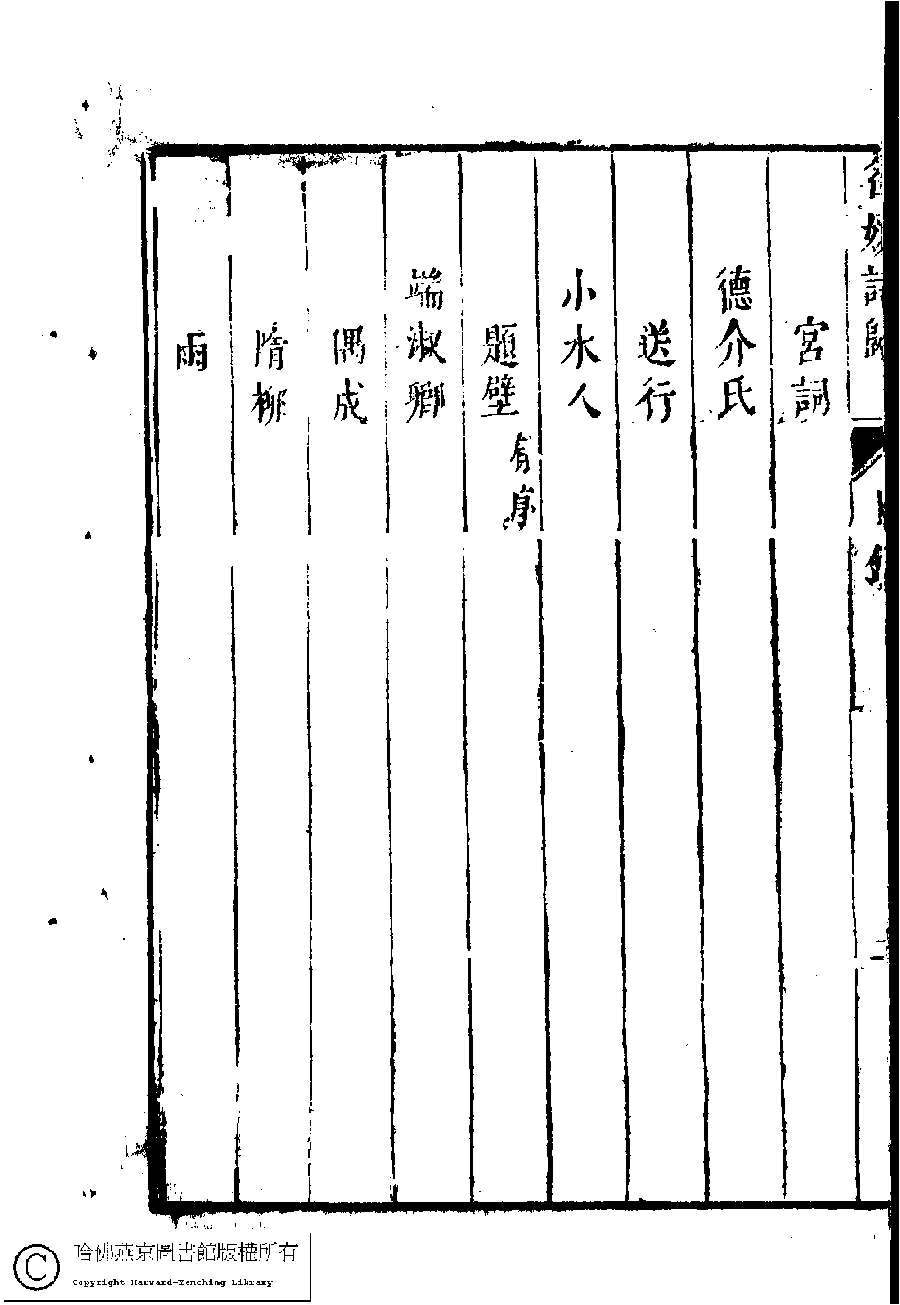 宮詞
德介氏
送行
小水人
題壁有序
端淑卿
偶成
隋柳
雨
二
哈佛燕京圖書館版權所有
Copyright Harvard-Yenching Library